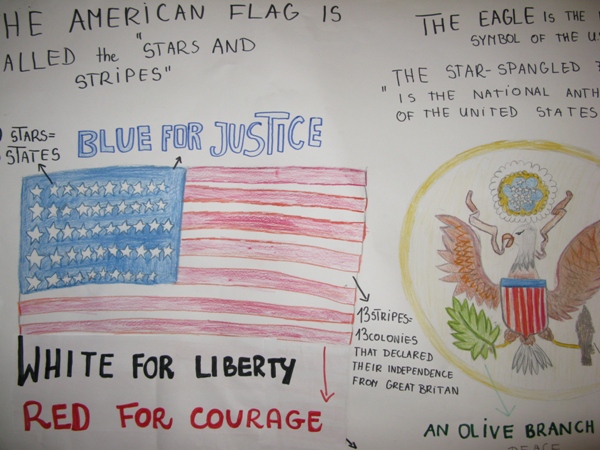 HE AMERICAN FLAG IS
ALLED the "STARS AND
STRIPES"
STARS=
STATES
BLUE FOR JUSTICE
13 STRIPES=
13 COLONIES
THAT DECLARED
THEIR INDEPENDENCE
FROM GREAT BRITAN
WHITE FOR LIBERTY
RED FOR COURAGE
THE EAGLE IS THE
SYMBOL OF THE U
THE STAR-SPANGLED
" IS THE NATIONAL ANTH
OF THE UNITED STATES
AN OLIVE BRANCH
PEACE